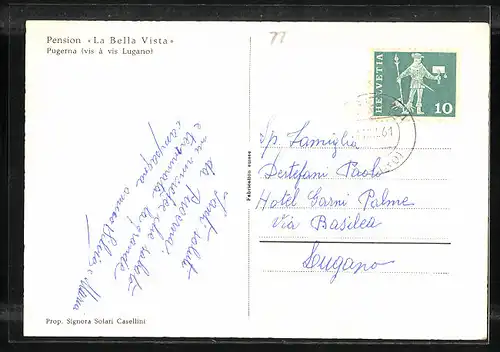 Pension «La Bella Vista»
Pugerna (vis à vis Lugano)
77
HELVETIA
10
61
Sp. Famiglia
Destefani Paolo
Hotel Garni Palme
Via Basilea
Lugano
Fabrication suisse
Tanti saluti
da Pugerna
che saluta
la grande
Prop. Signora Solari Casellini